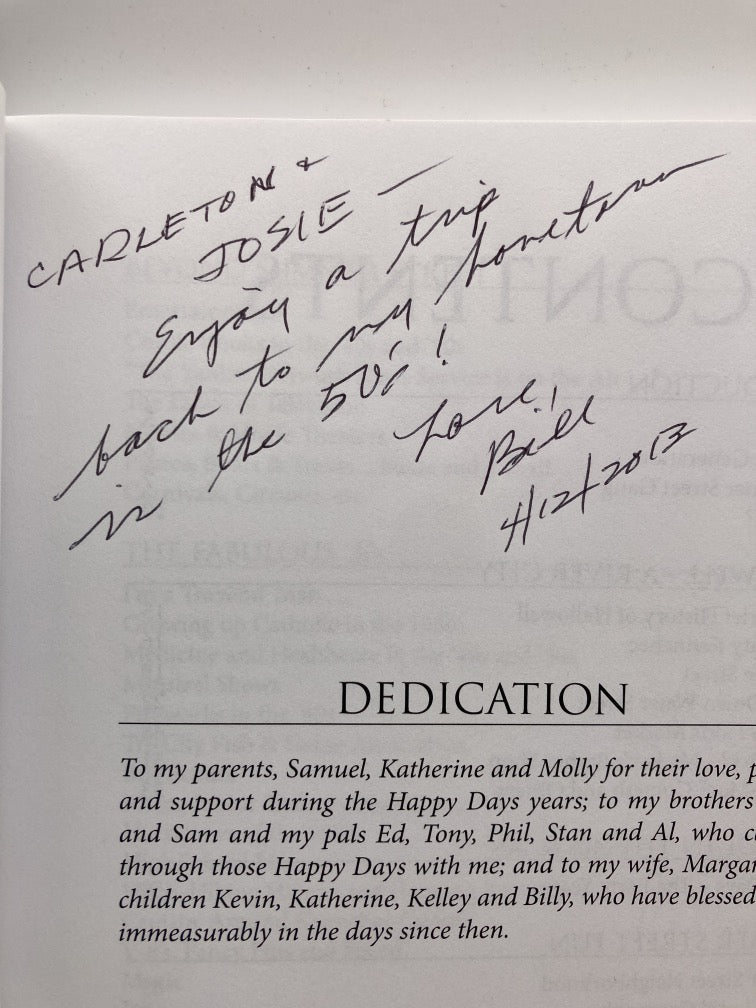 CARLETON +
JOSIE —
Enjoy a trip
back to my hometown
in the 50's!
Love,
Bill
4/12/2013
DEDICATION
To my parents, Samuel, Katherine and Molly for their love, p
and support during the Happy Days years; to my brothers
and Sam and my pals Ed, Tony, Phil, Stan and Al, who ca
through those Happy Days with me; and to my wife, Margar
children Kevin, Katherine, Kelley and Billy, who have blessed
immeasurably in the days since then.